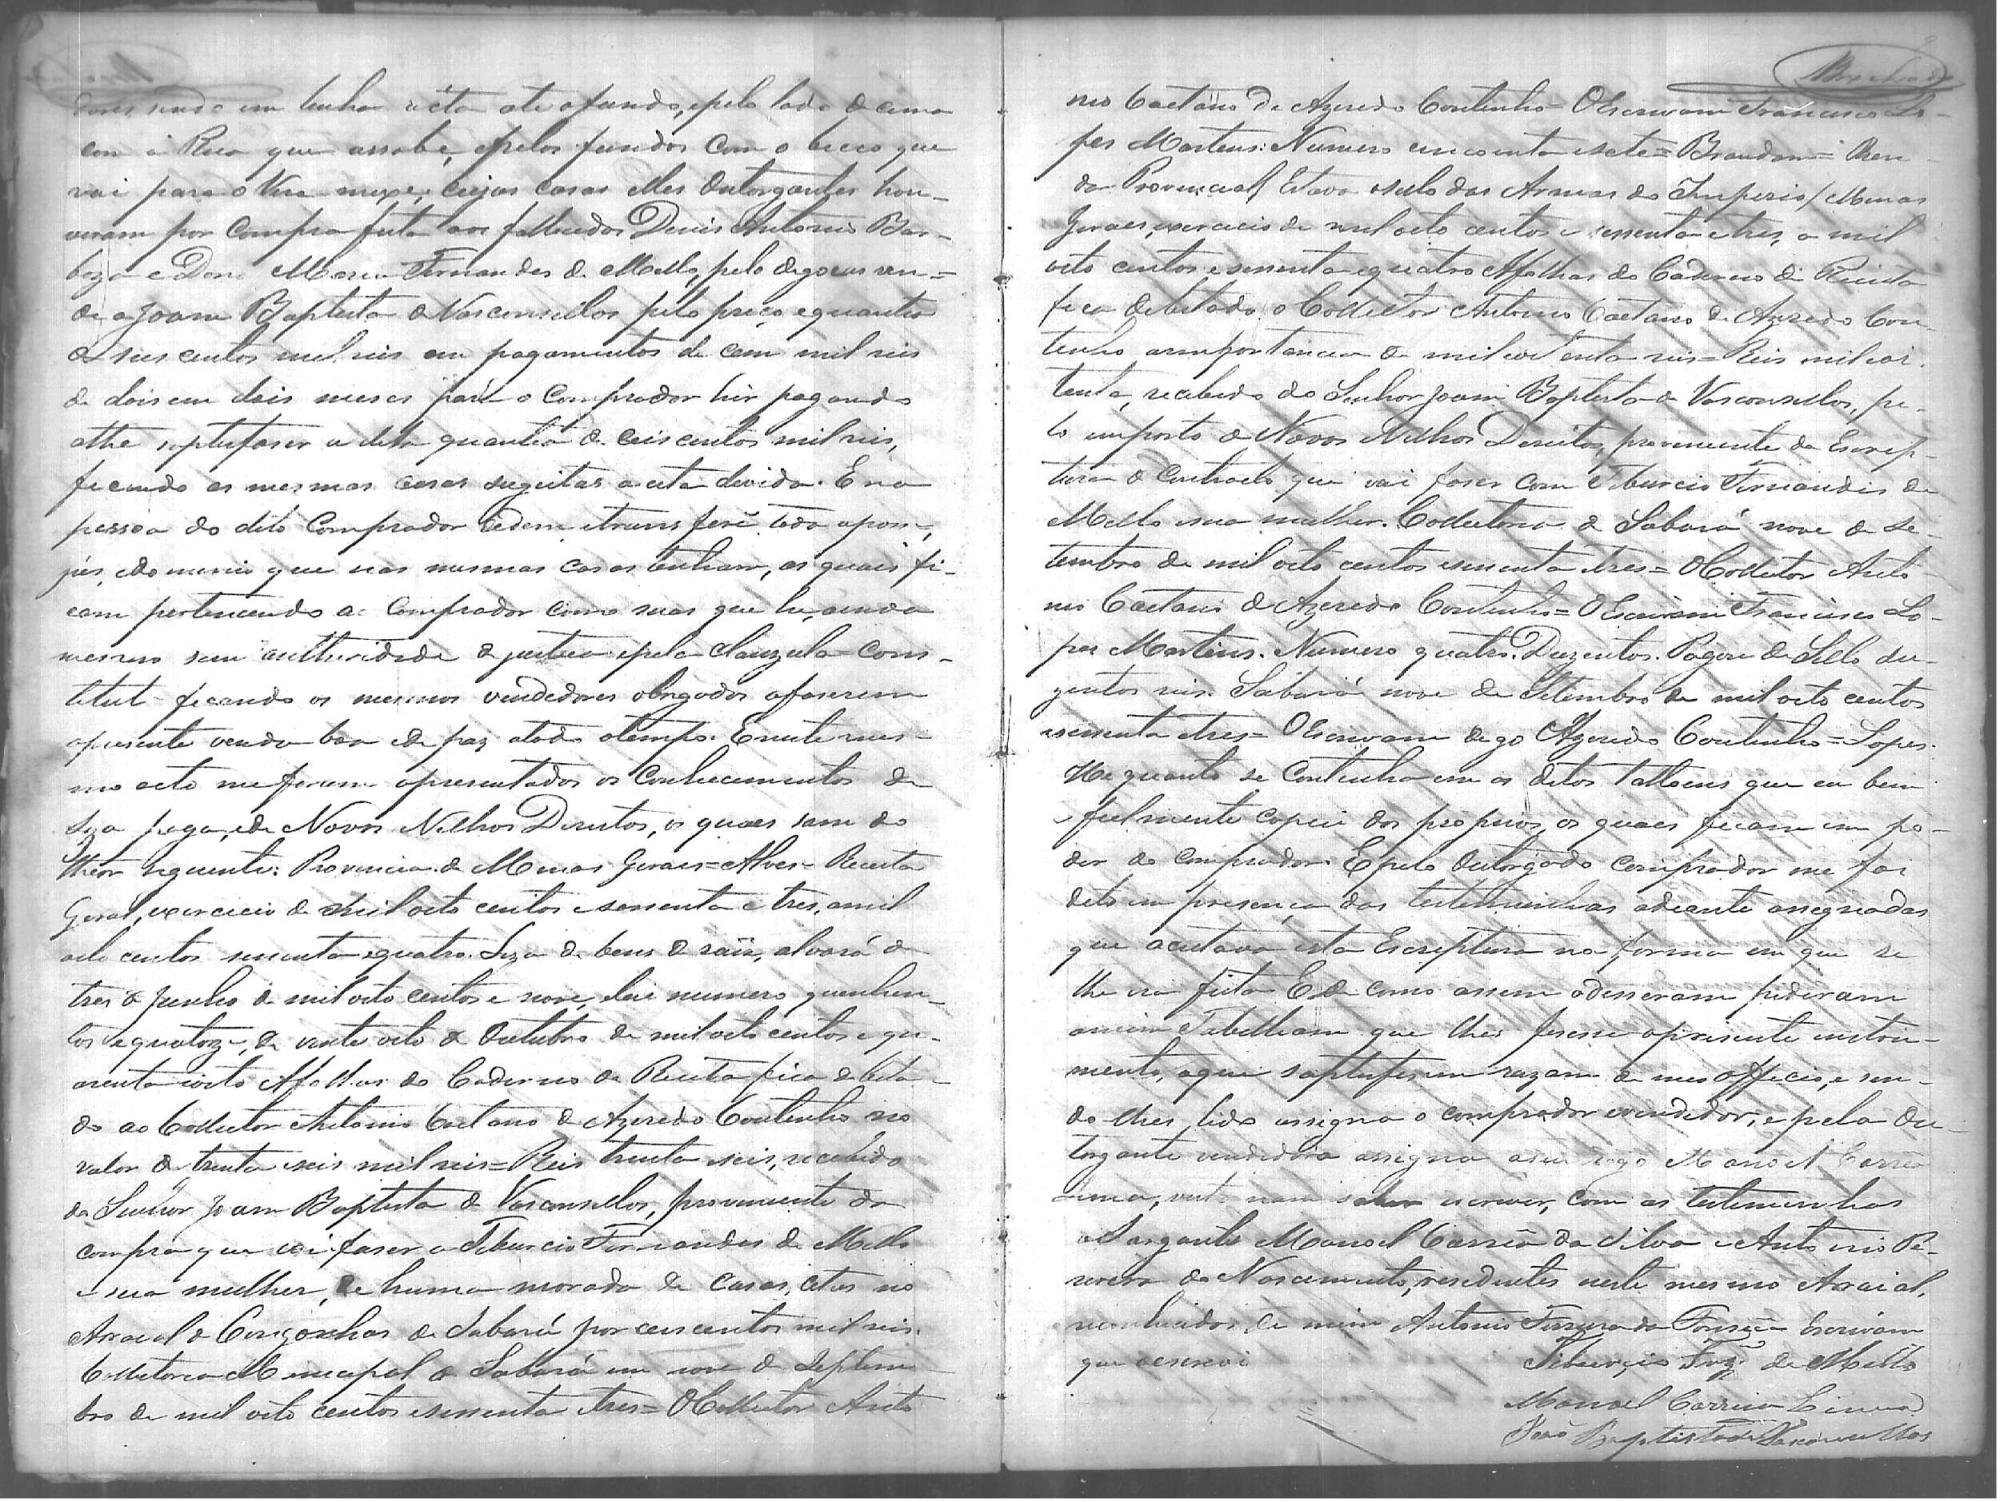 sendo em linha récta até ofundo, epelo lado de cima
com a Rua que assobe, epelos fundos com o becco que
vai para o Vira cujas casas elles Outorgantes hou-
veram por compra feita aos fallecidos Diniz Antonio Bar-
boza e Dona Maria Fernandes de Mello, pelo digo cus ven-
de a Joam Baptista de Vasconsellos pelo preço equantia
de seis centos mil reis em pagamentos de cem mil reis
de dois em dois meses para o comprador hir pagando
athe sastesfaser a dita quantia de ceis centos mil reis,
ficando as mesmas casas sugeitas a esta divida. E na
pessoa do dito Comprador cedem, etransferẽ toda apos-
ção, edominio que nas mesmas casas tenham, as quais fi-
cam pertencendo ao Comprador como suas que he, ainda
mesmo sem authuridade de justica epela Clauzula Cons-
titut ficando os mesmos vendedores obrigados afaserem
apresente venda boa ede paz atodo otempo. E neste mes-
mo acto me foram apresentados os Conhecimentos da
Siza paga, ede Novos Nelhos Direitos, os quaes sam do
theor siguente: Provincia de Minas Geraes = Alves = Receita
Geral, exercicio de mil oito centos e sessenta e tres, a mil
oito centos sessenta equatro. Siza de bens de raiz, alvará de
tres de Junho de mil oito centos e nove, Lei numero quenhen-
tos equatorze, de vinte oito de Outubro de mil oito centos e qu-
arenta eoito Affolhas do Caderno da Receita fica debita-
do ao Collector Antonio Caetano de Azeredo Coutinho no
valor de trinta seis mil reis = Reis trinta seis, recebido
do Senhor Joam Baptista de Vasconsellos, proveniente da
compra que vai faser a Teburcio Fernandes de Mello
e sua mulher, de huma morada de casas, citas no
Arraial de Congonhas de Sabará por ceis centos mil reis.
Colletoria Municipal de Sabará em nove de Septem
bro de mil oito centos esessenta etres = O Collector Anto
nio Caetano de Azeredo Coutinho = O Escrivam Francisco Lo-
pes Martins. Numero cincoenta esete = Brandam = Ren-
da Provincial / Estava o sello das Armas do Imperio / Minas
Geraes, exercicio de mil oito centos e sessenta etres, a mil
oito centos esessenta equatro Affolhas do Caderno da Receita
fica debitado o Collector Antonio Caetano de Azeredo Cou-
tinho aimportancia de mil eoitenta reis = Reis mil eoi-
tenta, recebido do Senhor Joam Baptista de Vasconsellos, pe-
lo imposto de Novos Nelhos Direitos, proveniente da Escrip-
tura de Contracto que vai faser com Teburcio Fernandes de
Mello esua mulher. Collectoria de Sabará nove de Se-
tembro de mil oito centos esessenta etres = O Collector Anto
nio Caetano de Azeredo Coutinho = O Escrivam Francisco Lo-
pes Martins. Numero quatro. Duzentos. Pagou de Sello du-
zentos reis. Sabará nove de Setembro de mil oito centos
esessenta etres = O Escrivam digo Azeredo Coutinho = Lopes.
He quanto se Continha em os ditos talloens que eu bem
e fielmente copiei dos proprios, os quaes ficam em po-
der do comprador. E pelo Outorgado comprador me foi
dito em presença das testemunhas adeante assignadas
que aceitava esta Escriptura na forma em que se
lhe era feita E de como assim odisseram pediram
amim Tabelleam que lhes fisesse opresente instru-
mento, aque sastesfis em razam de meo officio, e sen-
do lhes lido assigna o comprador evendedor, e pela Ou-
torgante vendedora assigna aseu rogo Manoel Correia
Lima, visto nam saber escrever, com as testemunhas
o Sargento Manoel Corrêa da Silva e Antonio Pe-
reira do Nascimento, residentes neste mesmo Arraial,
reconhecidos de mim Antonio Ferreira da Fonseca Escrivam
que oescrevi
Teburcio Frz de Mello
Manoel Correia Lima
João Baptista de Vasconcellos